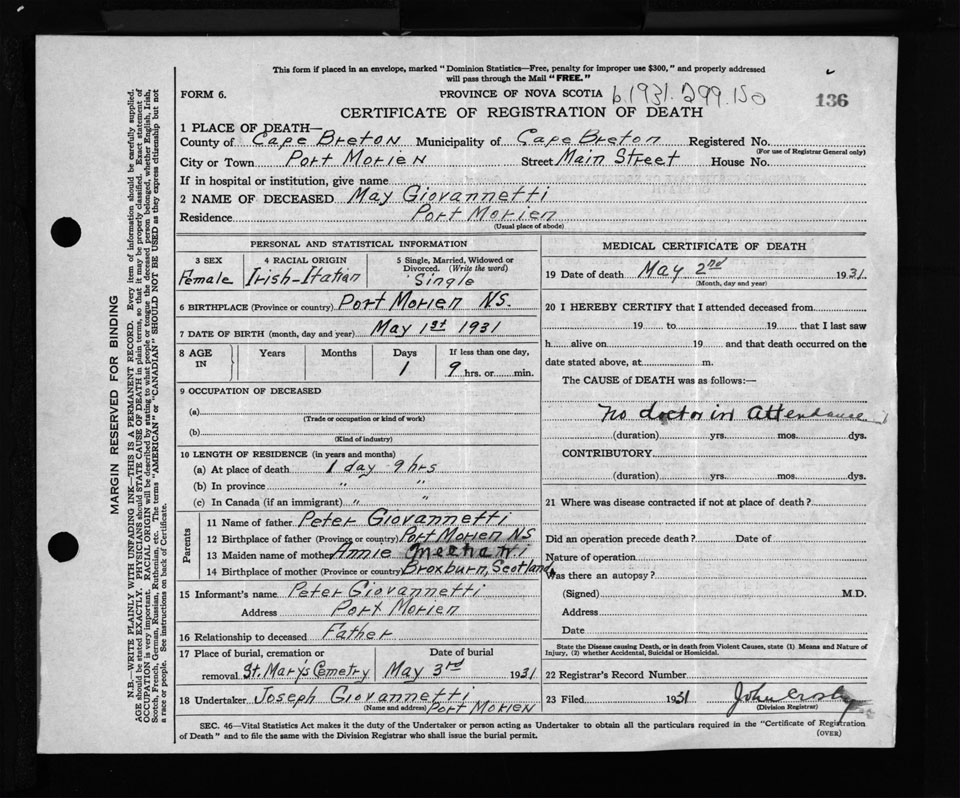 This form if placed in an envelope, marked "Dominion Statistics—Free, penalty for improper use $300," and properly addressed
will pass through the Mail "FREE."
FORM 6.
PROVINCE OF NOVA SCOTIA
b.1931.299.150
136
CERTIFICATE OF REGISTRATION OF DEATH
1 PLACE OF DEATH—
County of Cape Breton Municipality of Cape Breton Registered No.
(For use of Registrar General only)
City or Town Port Morien Street Main Street House No.
If in hospital or institution, give name
2 NAME OF DECEASED May Giovannetti
Residence Port Morien
(Usual place of abode)
PERSONAL AND STATISTICAL INFORMATION
3 SEX 4 RACIAL ORIGIN 5 Single, Married, Widowed or
Divorced. (Write the word)
Female Irish-Italian Single
6 BIRTHPLACE (Province or country) Port Morien NS.
7 DATE OF BIRTH (month, day and year) May 1st 1931
8 AGE IN Years Months Days If less than one day,
1 9 hrs. or min.
9 OCCUPATION OF DECEASED
(a)
(Trade or occupation or kind of work)
(b)
(Kind of industry)
10 LENGTH OF RESIDENCE (in years and months)
(a) At place of death 1 day 9 hrs
(b) In province " "
(c) In Canada (if an immigrant) " "
Parents
11 Name of father Peter Giovannetti
12 Birthplace of father (Province or country) Port Morien NS
13 Maiden name of mother Annie
14 Birthplace of mother (Province or country) Broxburn, Scotland
15 Informant's name Peter Giovannetti
Address Port Morien
16 Relationship to deceased Father
17 Place of burial, cremation or Date of burial
removal St. Mary's Cemetry May 3rd 1931
18 Undertaker Joseph Giovannetti
(Name and address) Port Morien
MEDICAL CERTIFICATE OF DEATH
19 Date of death May 2nd 1931
(Month, day and year)
20 I HEREBY CERTIFY that I attended deceased from
19 to 19 that I last saw
h alive on 19 and that death occurred on the
date stated above, at m.
The CAUSE of DEATH was as follows:—
No doctor in attendance
(duration) yrs. mos. dys.
CONTRIBUTORY
(duration) yrs. mos. dys.
21 Where was disease contracted if not at place of death?
Did an operation precede death? Date of
Nature of operation
Was there an autopsy?
(Signed) M.D.
Address
Date
State the Disease causing Death, or in death from Violent Causes, state (1) Means and Nature of
Injury, (2) whether Accidental, Suicidal or Homicidal.
22 Registrar's Record Number
23 Filed 1931 John Crosby
(Division Registrar)
SEC. 46—Vital Statistics Act makes it the duty of the Undertaker or person acting as Undertaker to obtain all the particulars required in the "Certificate of Registration
of Death" and to file the same with the Division Registrar who shall issue the burial permit.
(OVER)
MARGIN RESERVED FOR BINDING
N.B.—WRITE PLAINLY WITH UNFADING INK—THIS IS A PERMANENT RECORD. Every item of information should be carefully supplied.
AGE should be stated EXACTLY. PHYSICIANS should STATE CAUSE OF DEATH in plain terms, so that it may be properly classified. Exact statement of
OCCUPATION is very important. RACIAL ORIGIN will be described by stating to what people or tongue the deceased person belonged, whether English, Irish,
Scotch, French, German, Russian, Ruthenian, etc. The terms "AMERICAN" or "CANADIAN" SHOULD NOT BE USED as they express citizenship but not
a race or people. See instructions on back of Certificate.